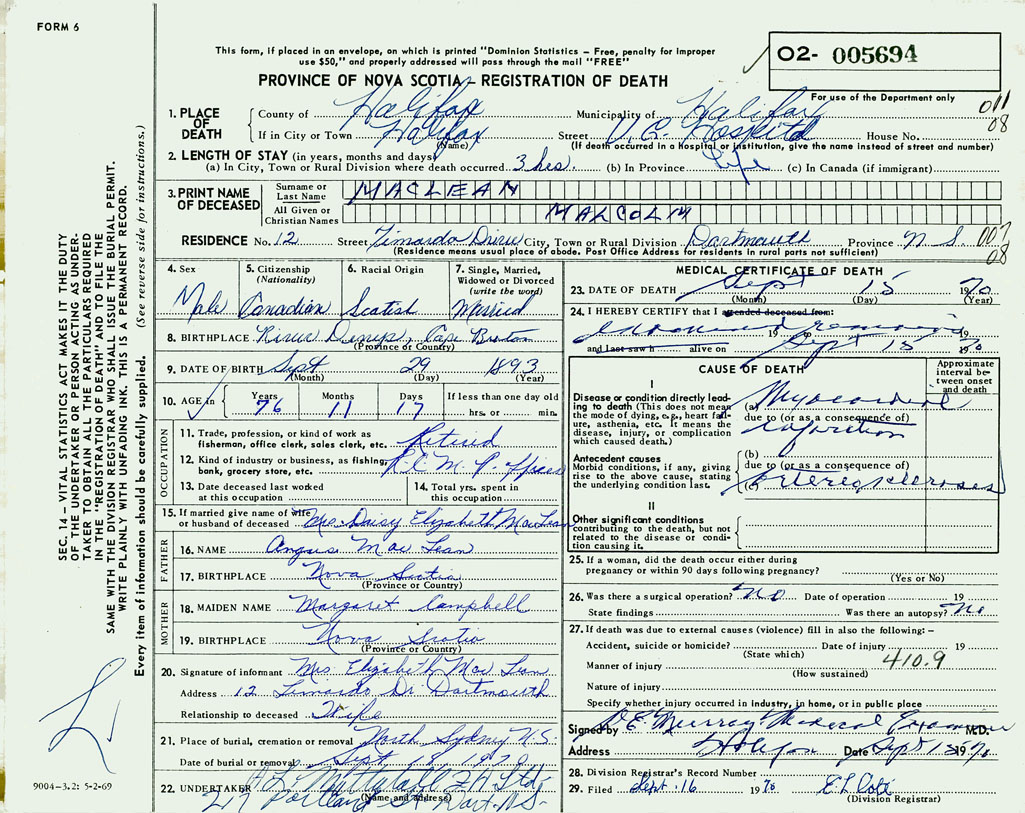 FORM 6
This form, if placed in an envelope, on which is printed "Dominion Statistics – Free, penalty for improper
use $50," and properly addressed will pass through the mail "FREE"
PROVINCE OF NOVA SCOTIA – REGISTRATION OF DEATH
02- 005694
For use of the Department only
011
08
1. PLACE OF DEATH
County of Halifax Municipality of Halifax
If in City or Town Halifax Street V. G. Hospital House No.
(Name) (If death occurred in a hospital or institution, give the name instead of street and number)
2. LENGTH OF STAY (in years, months and days)
(a) In City, Town or Rural Division where death occurred 3 hrs (b) In Province life (c) In Canada (if immigrant)
3. PRINT NAME OF DECEASED
Surname or Last Name MACLEAN
All Given or Christian Names MALCOLM
RESIDENCE No. 12 Street Drive City, Town or Rural Division Dartmouth Province N.S. 007
08
(Residence means usual place of abode. Post Office Address for residents in rural parts not sufficient)
4. Sex
Male
5. Citizenship
(Nationality)
Canadian
6. Racial Origin
Scotish
7. Single, Married,
Widowed or Divorced
(write the word)
Married
8. BIRTHPLACE River Denys, Cape Breton
(Province or Country)
9. DATE OF BIRTH Sept 29 1893
(Month) (Day) (Year)
10. AGE in
Years Months Days If less than one day old
76 11 17 hrs. or min.
OCCUPATION
11. Trade, profession, or kind of work as
fisherman, office clerk, sales clerk, etc. Retired
12. Kind of industry or business, as fishing,
bank, grocery store, etc. R C M P officer
13. Date deceased last worked
at this occupation
14. Total yrs. spent in
this occupation
15. If married give name of wife
or husband of deceased Mrs Daisy Elizabeth MacLean
FATHER
16. NAME Angus Mac Lean
17. BIRTHPLACE Nova Scotia
(Province or Country)
MOTHER
18. MAIDEN NAME Margaret Campbell
19. BIRTHPLACE Nova Scotia
(Province or Country)
20. Signature of informant Mrs. Elizabeth Mac Lean
Address 12 Dr. Dartmouth
Relationship to deceased Wife
21. Place of burial, cremation or removal North Sydney N.S.
Date of burial or removal Sept 18 1970
22. UNDERTAKER F H Ltd.
(Name and address)
217 Portland St Dart. N.S.
MEDICAL CERTIFICATE OF DEATH
23. DATE OF DEATH Sept 15 1970
(Month) (Day) (Year)
24. I HEREBY CERTIFY that I attended deceased from:
examined remains 19
and last saw h alive on Sept 15 1970
CAUSE OF DEATH
Approximate
interval be-
tween onset
and death
I
Disease or condition directly lead-
ing to death (This does not mean
the mode of dying, e.g., heart fail-
ure, asthenia, etc. It means the
disease, injury, or complication
which caused death.)
(a) Myocardial
due to (or as a consequence of)
infarction
Antecedent causes
Morbid conditions, if any, giving
rise to the above cause, stating
the underlying condition last.
(b)
due to (or as a consequence of)
(c) arteriosclerosis
II
Other significant conditions
contributing to the death, but not
related to the disease or condi-
tion causing it.
25. If a woman, did the death occur either during
pregnancy or within 90 days following pregnancy?
(Yes or No)
26. Was there a surgical operation? No Date of operation 19
State findings Was there an autopsy? No
27. If death was due to external causes (violence) fill in also the following: –
Accident, suicide or homicide? Date of injury 19
(State which)
410.9
Manner of injury
(How sustained)
Nature of injury
Specify whether injury occurred in industry, in home, or in public place
Signed by D.E. Murray Medical Examiner M.D.
Address Halifax Date Sept 15 1970
28. Division Registrar's Record Number
29. Filed Sept. 16 1970
(Division Registrar)
SEC. 14 – VITAL STATISTICS ACT MAKES IT THE DUTY
OF THE UNDERTAKER OR PERSON ACTING AS UNDER-
TAKER TO OBTAIN ALL THE PARTICULARS REQUIRED
IN THE "REGISTRATION OF DEATH" AND TO FILE THE
SAME WITH THE DIVISION REGISTRAR WHO SHALL ISSUE THE BURIAL PERMIT.
WRITE PLAINLY WITH UNFADING INK. THIS IS A PERMANENT RECORD.
Every item of information should be carefully supplied. (See reverse side for instructions.)
9004-3.2: 5-2-69